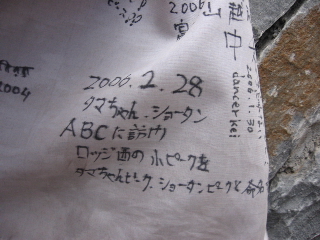 2006
山
宮
越中
2006.1.30
dancer kei
2004
2006.2.28
タマちゃん.ショータン
ABCに訪け
ロッジ西の小ピークを
タマちゃんピーク.ショータンピークと命名